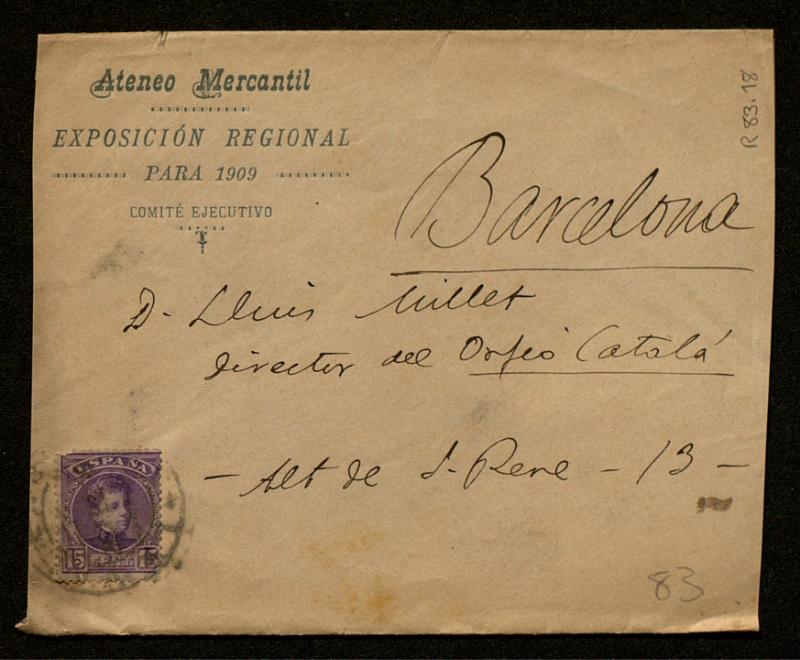 Ateneo Mercantil
EXPOSICIÓN REGIONAL
PARA 1909
COMITÉ EJECUTIVO
R 83.18
Barcelona
D. Lluis Millet
director del Orfeó Catalá
- Alt de S. Pere - 13 -
ESPAÑA
15 CENT 15
83